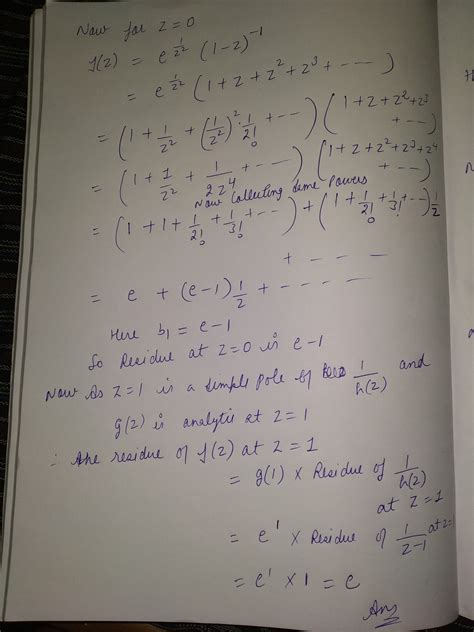 Now for z=0
f(z) = e^{1/z²} (1-z)^{-1}
= e^{1/z²} (1+z+z²+z³+ ---)
= (1+1/z²+(1/z²)²·1/2!+ ---) (1+z+z²+z³ + --)
= (1+1/z²+1/2z⁴+ ---) (1+z+z²+z³+z⁴ + --)
Now Collecting same Powers
= (1+1+1/2!+1/3!+ --) + (1+1/2!+1/3!+ --)1/z
+ - - -
= e + (e-1)1/z + - - - -
Here b₁ = e-1
So Residue at z=0 is e-1
Now As z=1 is a simple pole of 1/h(z) and
g(z) is analytic at z=1
∴ the residue of f(z) at z=1
= g(1) × Residue of 1/h(z)
at z=1
= e¹ × Residue of 1/z-1 at z=
= e¹ × 1 = e
Ans